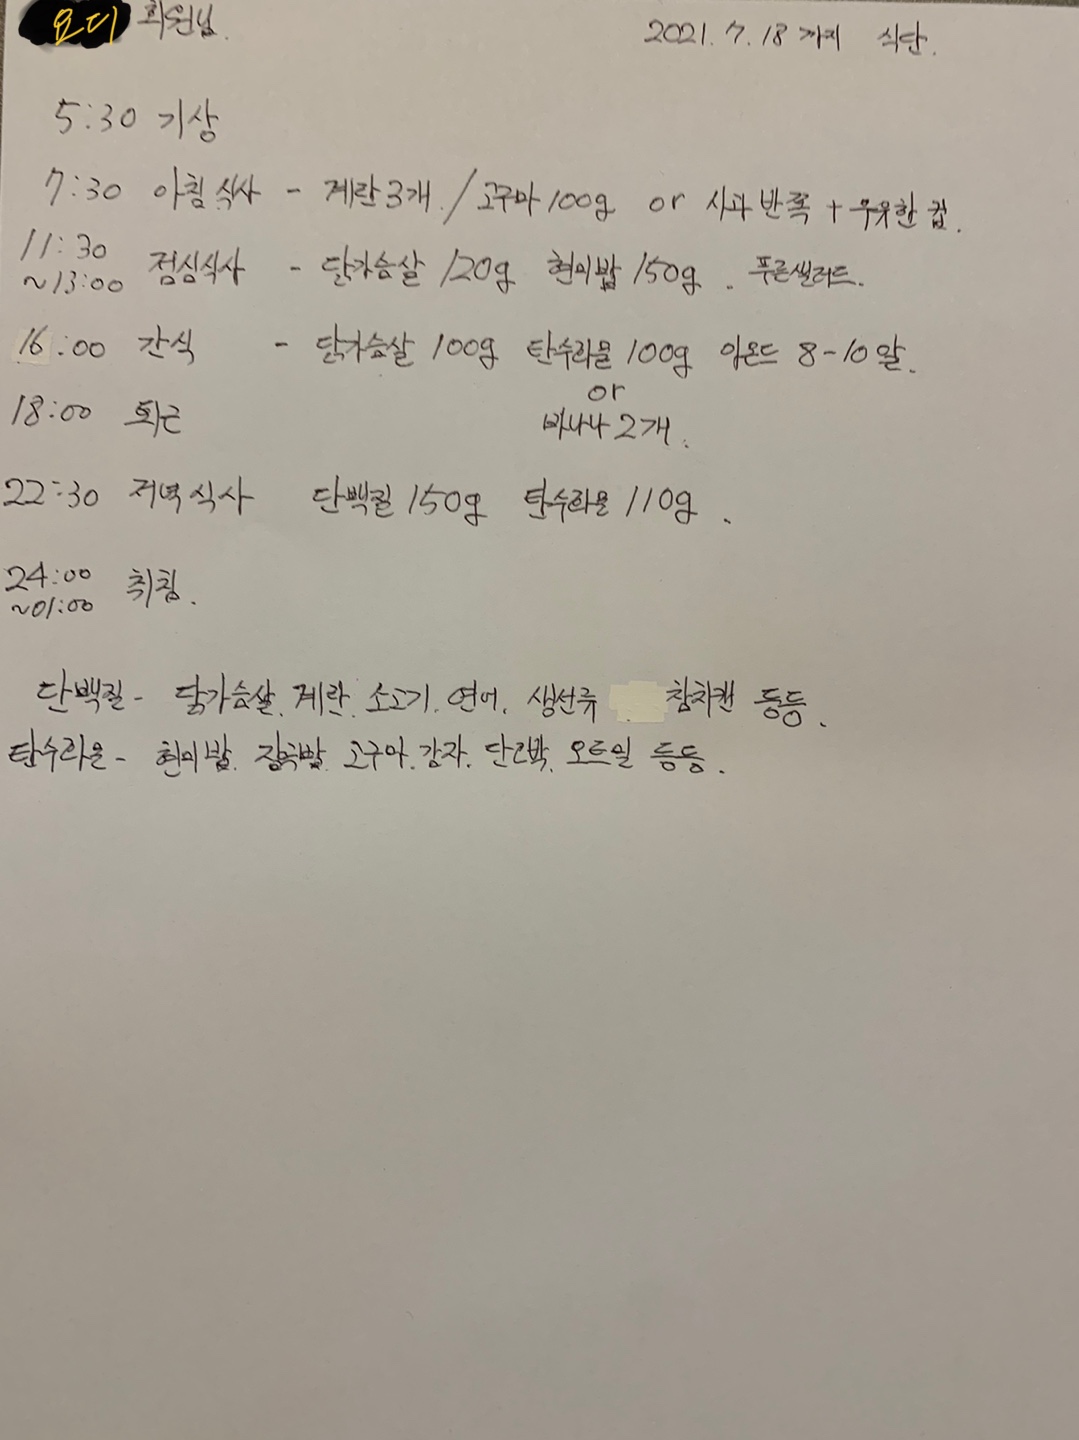 요디 회원님.
2021. 7. 18 까지 식단.
5:30 기상
7:30 아침식사 - 계란3개. / 고구마100g or 사과반쪽 + 우유한컵.
11:30 ~13:00 점심식사 - 닭가슴살 120g 현미밥 150g. 푸른샐러드.
16:00 간식 - 닭가슴살 100g 탄수화물 100g 아몬드 8-10알.
or
18:00 퇴근 바나나 2개.
22:30 저녁식사 단백질 150g 탄수화물 110g.
24:00 ~01:00 취침.
단백질 - 닭가슴살. 계란. 소고기. 연어. 생선류 참치캔 등등.
탄수화물 - 현미밥. 잡곡밥. 고구마. 감자. 단호박. 오트밀 등등.